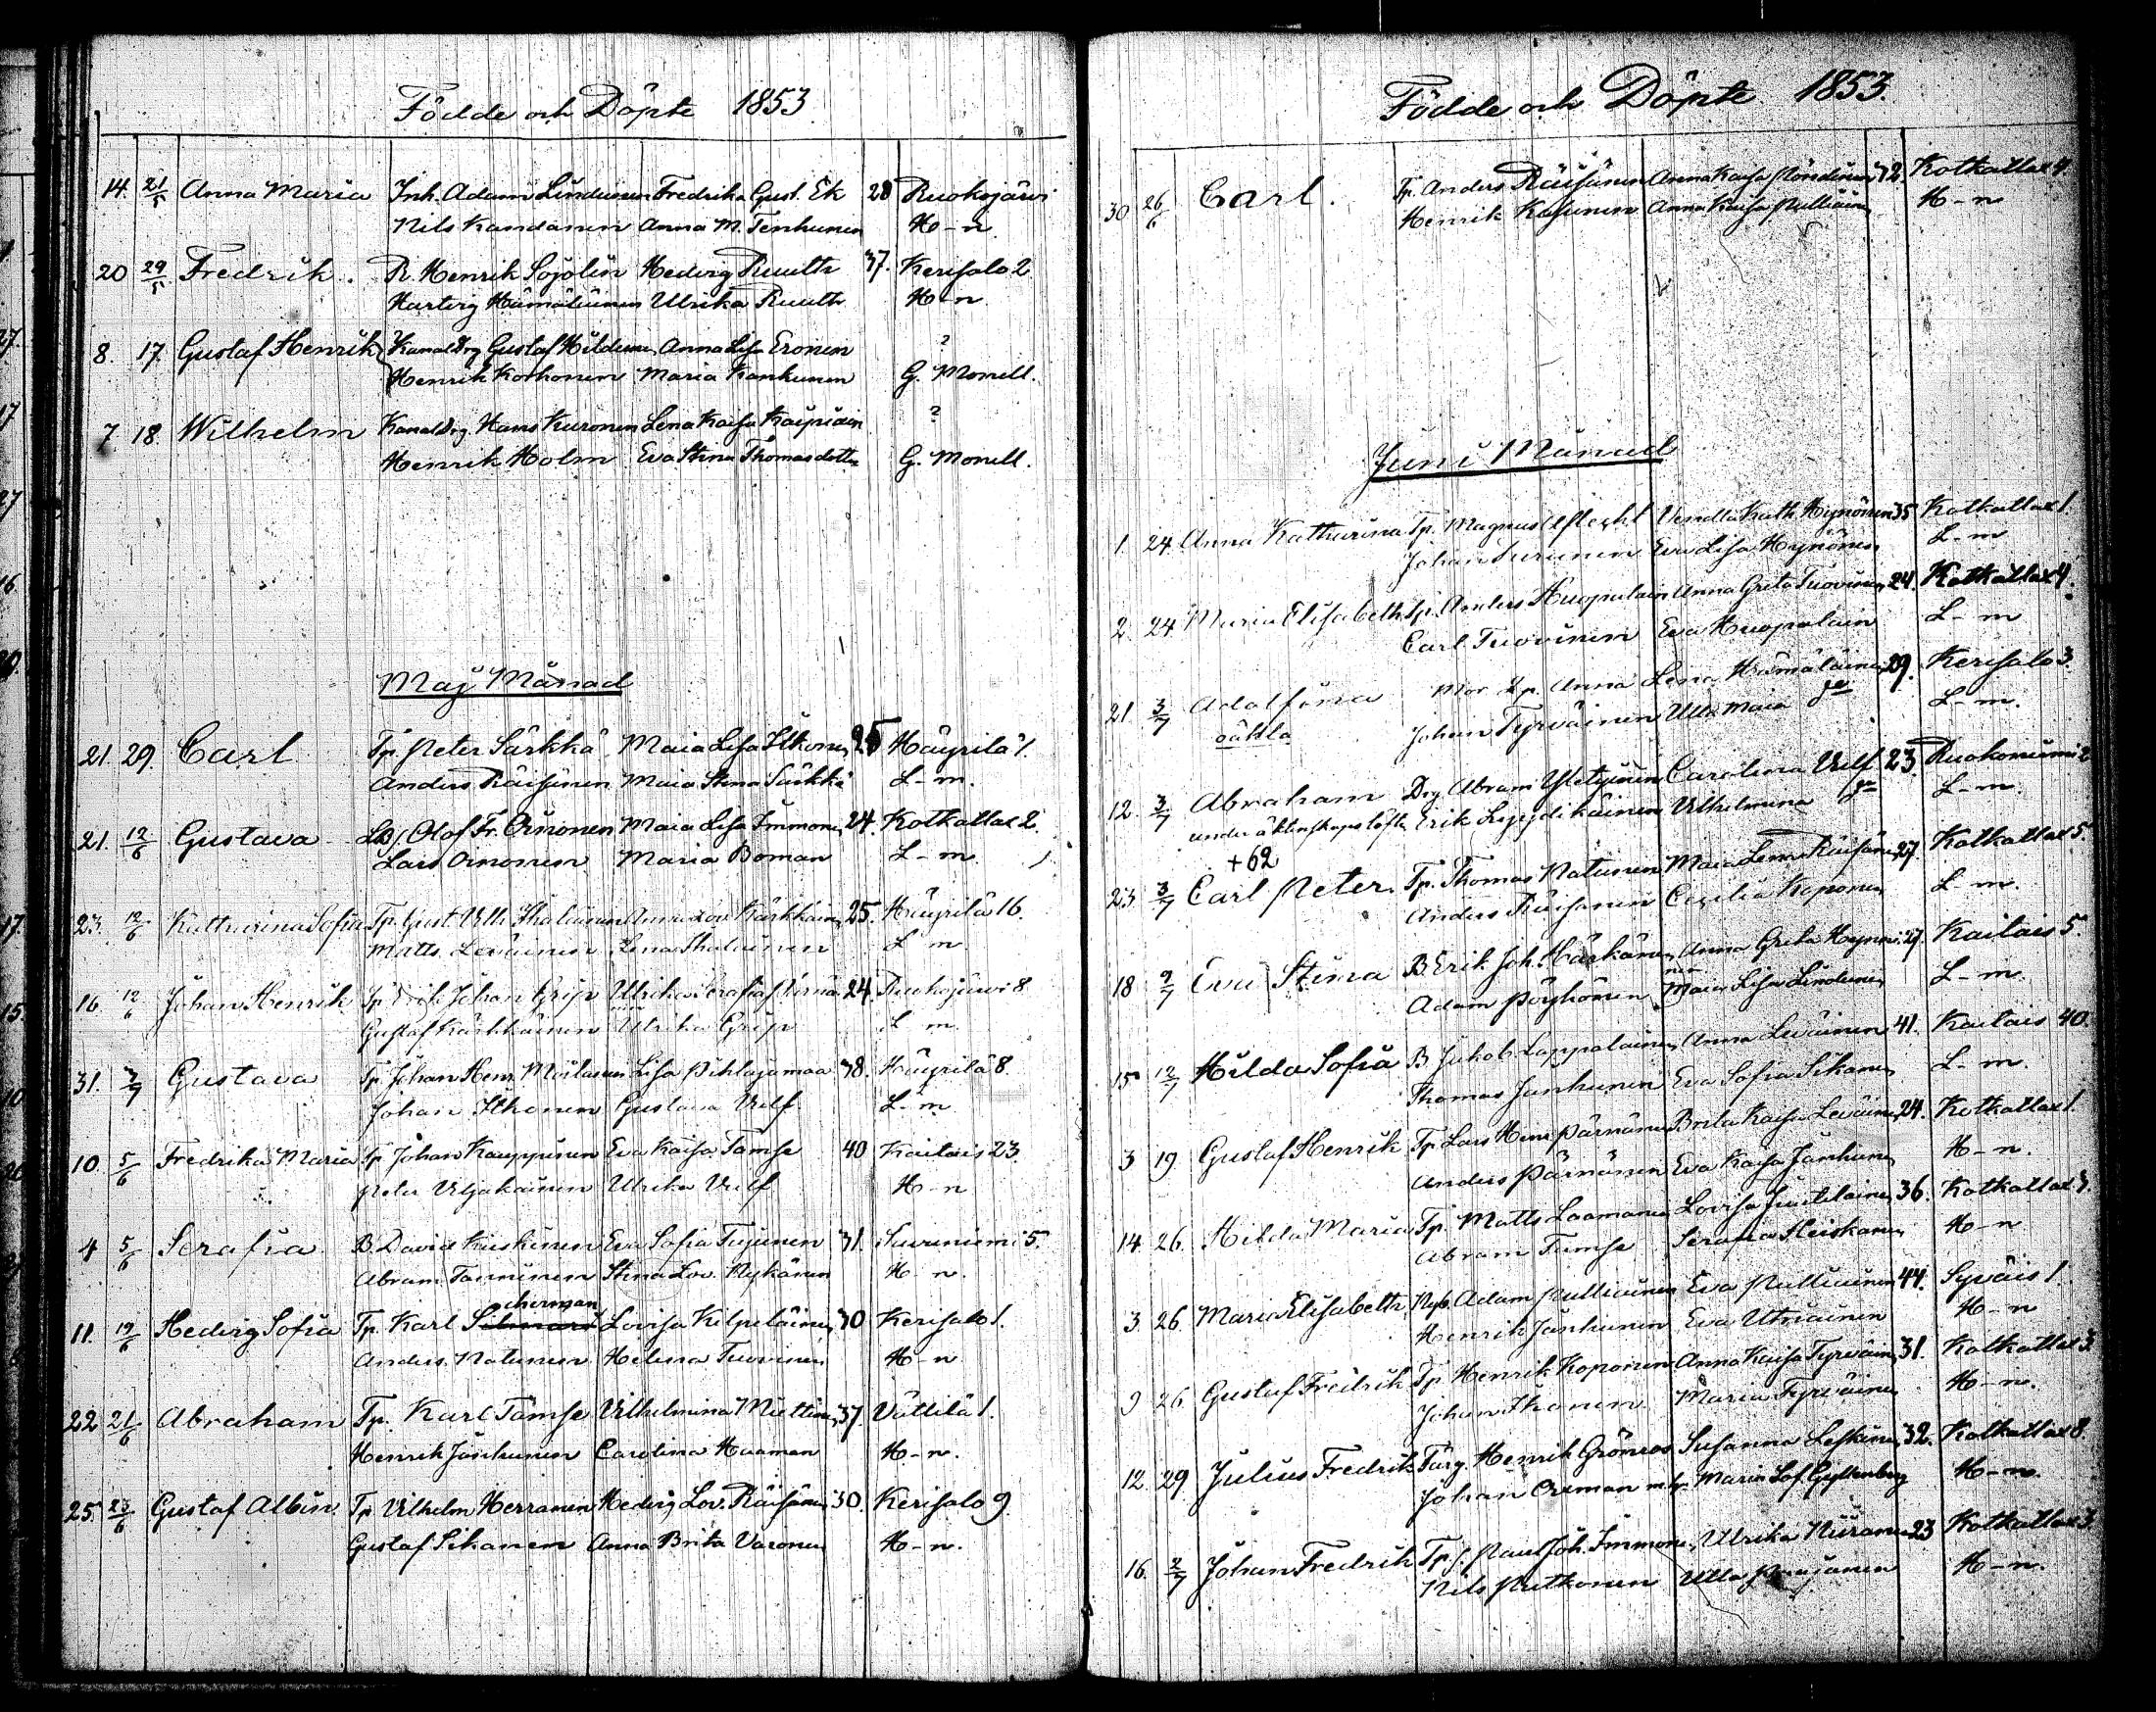 Födde och Döpte 1853
14. 21/5 Anna Maria Inh. Adam Lindunen Fredrika Gust. Ek 28 Ruokojärvi
Nils Kandanen Anna M. Tenhunen H-n
20 29/5 Fredrik. R Henrik Sojolin Hedvig Ruuth 37. Kerisalo 2
Hartvig Hämäläinen Ulrika Ruuth H-n
8. 17. Gustaf Henrik Kanaldrg Gustaf Hildunen Anna Lisa Eronen ?
Henrik Korhonen Maria Kankunen G. Monell.
7 18. Wilhelm Kanaldrg Hans Kuronen Lena Kaisa Kaipiain ?
Henrik Holm Eva Stina Thomasdotter G. Monell.
Maj Månad
21. 29. Carl Tp. Peter Särkkä Maia Lisa Ilkonen 25 Häyrilä 1.
Anders Räisänen Maia Stina Särkkä L-m.
21. 12/6 Gustava Olof Fr. Ornonen Maia Lisa Immonen 24. Kotkatlax 2.
Lars Ornonen Maria Boman L-m
23. 12/6 Katharina Sofia Tp. Gust. Vilh. Ihalainen Anna Lov. Kärkkäin 25. Häyrilä 16.
Matts Leväinen Lena Ihalainen L m
16. 12/6 Johan Henrik Johan Grip Ulrika Serafia 24 Ruokojärvi 8
Gustaf Kärkkäinen Ulrika Grip L m
31. 3/7 Gustava Tp. Johan Henr. Moilanen Lisa Pihlajamaa 38. Häyrilä 8.
Johan Ilkonen Gustava Vulf L-m
10. 5/6 Fredrika Maria Tp Johan Kauppinen Eva Kaisa Tamse 40 Kaitais 23.
Peter Viljakainen Ulrika Vulf H-n
4 5/6 Serafia B. David Kiiskinen Eva Sofia Tujunen 31. Savuniemi 5.
Abram Tanninen Stina Lov. Nykänen H n.
cherman
11. 19/6 Hedvig Sofia Tp. Karl Lovisa Kilpeläinen 30 Kerisalo 1.
Anders Natunen Helena Tuovinen H-n
22 21/6 Abraham Tp. Karl Tamse Vilhelmina Miettinen 37. Vättilä 1.
Henrik Janhunen Carolina Haaman H-n.
25. 23/6 Gustaf Albin. Tp Vilhelm Herranen Hedvig Lov. Räisänen 30. Kerisalo 9.
Gustaf Sikanen Anna Brita Varonen H-n.
Födde och Döpte 1853.
30 26/6 Carl. Tp. Anders Räisänen Anna Kaisa 42. Kotkatlax 4.
Henrik Kasunen Anna Kaisa Pulliäinen H-n
Juni Månad
1. 24. Anna Katharina Tp. Magnus Vendla Kath. Hynönen 35 Kotkatlax 1.
Johan Turunen Eva Lisa Hynönen L-m
2. 24 Maria Elisabeth Tp. Anders Huopalain Anna Greta Tuovinen 24. Kotkatlax 4.
Carl Tuovinen Eva Huopalain L-m
21 3/7 Adolfina Mor Lp. Anna Lena Hämäläinen 29. Kerisalo 3.
oäkta Johan Tyrväinen Ulla Maia L-m.
12. 3/7 Abraham Drg Abram Carolina Vulf 23. Ruokoniemi 2
under äktenskapslöfte Erik Vilhelmina L-m.
+62
23 3/7 Carl Peter. Tp. Thomas Natunen Maia Lena Räisänen 27. Kotkatlax 5.
Anders Räisänen Cecilia Koponen L m.
18 9/7 Eva Stina B. Erik Joh. Härkänen Anna Greta Hynni 27. Kaitais 5.
Adam Pöyhönen Maia Lisa Lindunen L-m
15 12/7 Hilda Sofia B Jakob Lappalainen Anna Leväinen 41. Kaitais 40.
Thomas Janhunen Eva Sofia Sikanen L-m.
3 19. Gustaf Henrik Tp Lars Henr. Pärnänen Brita Kaisa Leväinen 24. Kotkatlax 1.
Anders Pärnänen Eva Kaisa Janhunen H-n.
14. 26. Hilda Maria Tp. Matts Laamanen Lovisa 36. Kotkatlax
Abram Tamse Serafia Heiskanen H-n
3. 26. Maria Elisabeth Nyb. Adam Pulliainen Eva Pulliainen 44. Syväis 1.
Henrik Janhunen Eva Utriainen H-n
9 26. Gustaf Fredrik Tp Henrik Koponen Anna Kaisa Tyrväin 31. Kotkatlax 3.
Johan Ikonen Maria Tyrväinen H-n.
12. 29 Julius Fredrik Färg. Henrik Grönroos Susanna Leskinen 32. Kotkatlax 8.
Johan Maria Sof. Gyllenberg H-n.
16. 2/7 Johan Fredrik Tp Paul Joh. Immonen Ulrika Niiranen 23 Kotkatlax 3.
Nils Putkonen Ulla H-n.